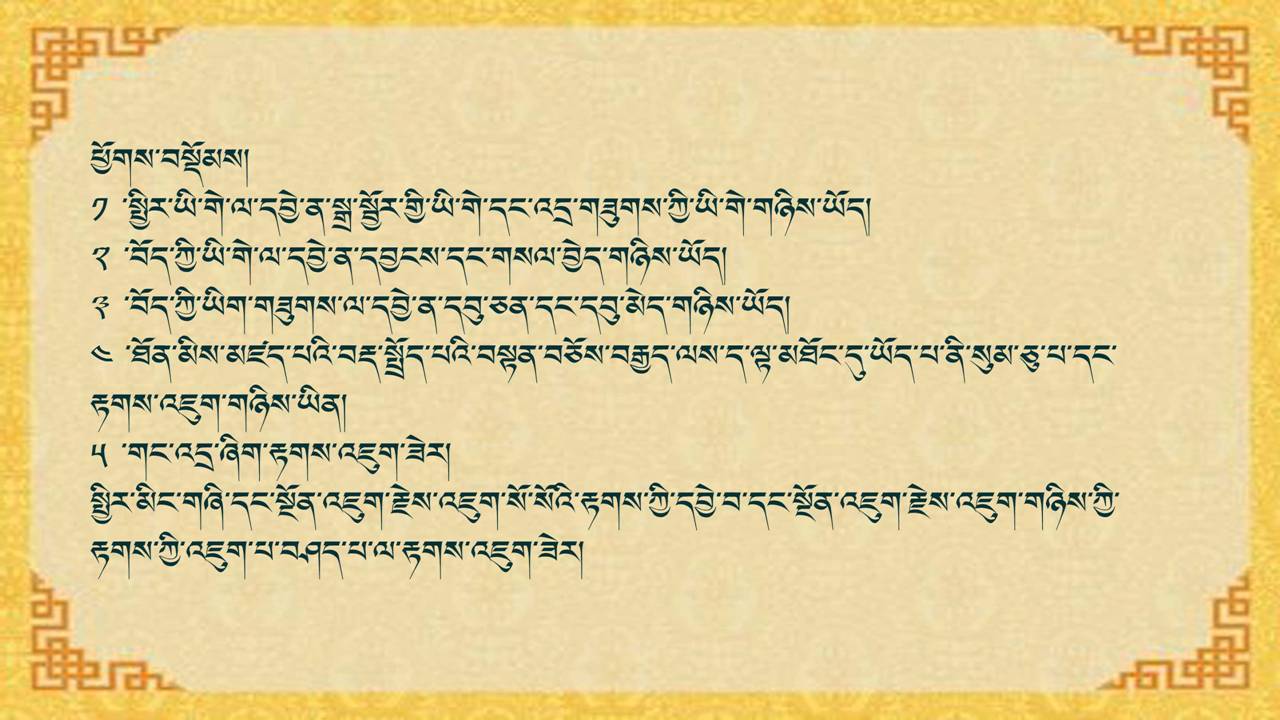 ཕྱོགས་བསྡོམས།
༡ ་སྤྱིར་ཡི་གེ་ལ་དབྱེ་ན་སྒྲ་སྦྱོར་གྱི་ཡི་གེ་དང་འདྲ་གཟུགས་ཀྱི་ཡི་གེ་གཉིས་ཡོད།
༢ ་བོད་ཀྱི་ཡི་གེ་ལ་དབྱེ་ན་དབྱངས་དང་གསལ་བྱེད་གཉིས་ཡོད།
༣ ་བོད་ཀྱི་ཡིག་གཟུགས་ལ་དབྱེ་ན་དབུ་ཅན་དང་དབུ་མེད་གཉིས་ཡོད།
༤ ་ཐོན་མིས་མཛད་པའི་བརྡ་སྤྲོད་པའི་བསྟན་བཅོས་བརྒྱད་ལས་ད་ལྟ་མཐོང་དུ་ཡོད་པ་ནི་སུམ་ཅུ་པ་དང་
རྟགས་འཇུག་གཉིས་ཡིན།
༥ ་གང་འདྲ་ཞིག་རྟགས་འཇུག་ཟེར།
སྤྱིར་མིང་གཞི་དང་སྔོན་འཇུག་རྗེས་འཇུག་སོ་སོའི་རྟགས་ཀྱི་དབྱེ་བ་དང་སྔོན་འཇུག་རྗེས་འཇུག་གཉིས་ཀྱི་
རྟགས་ཀྱི་འཇུག་པ་བཤད་པ་ལ་རྟགས་འཇུག་ཟེར།